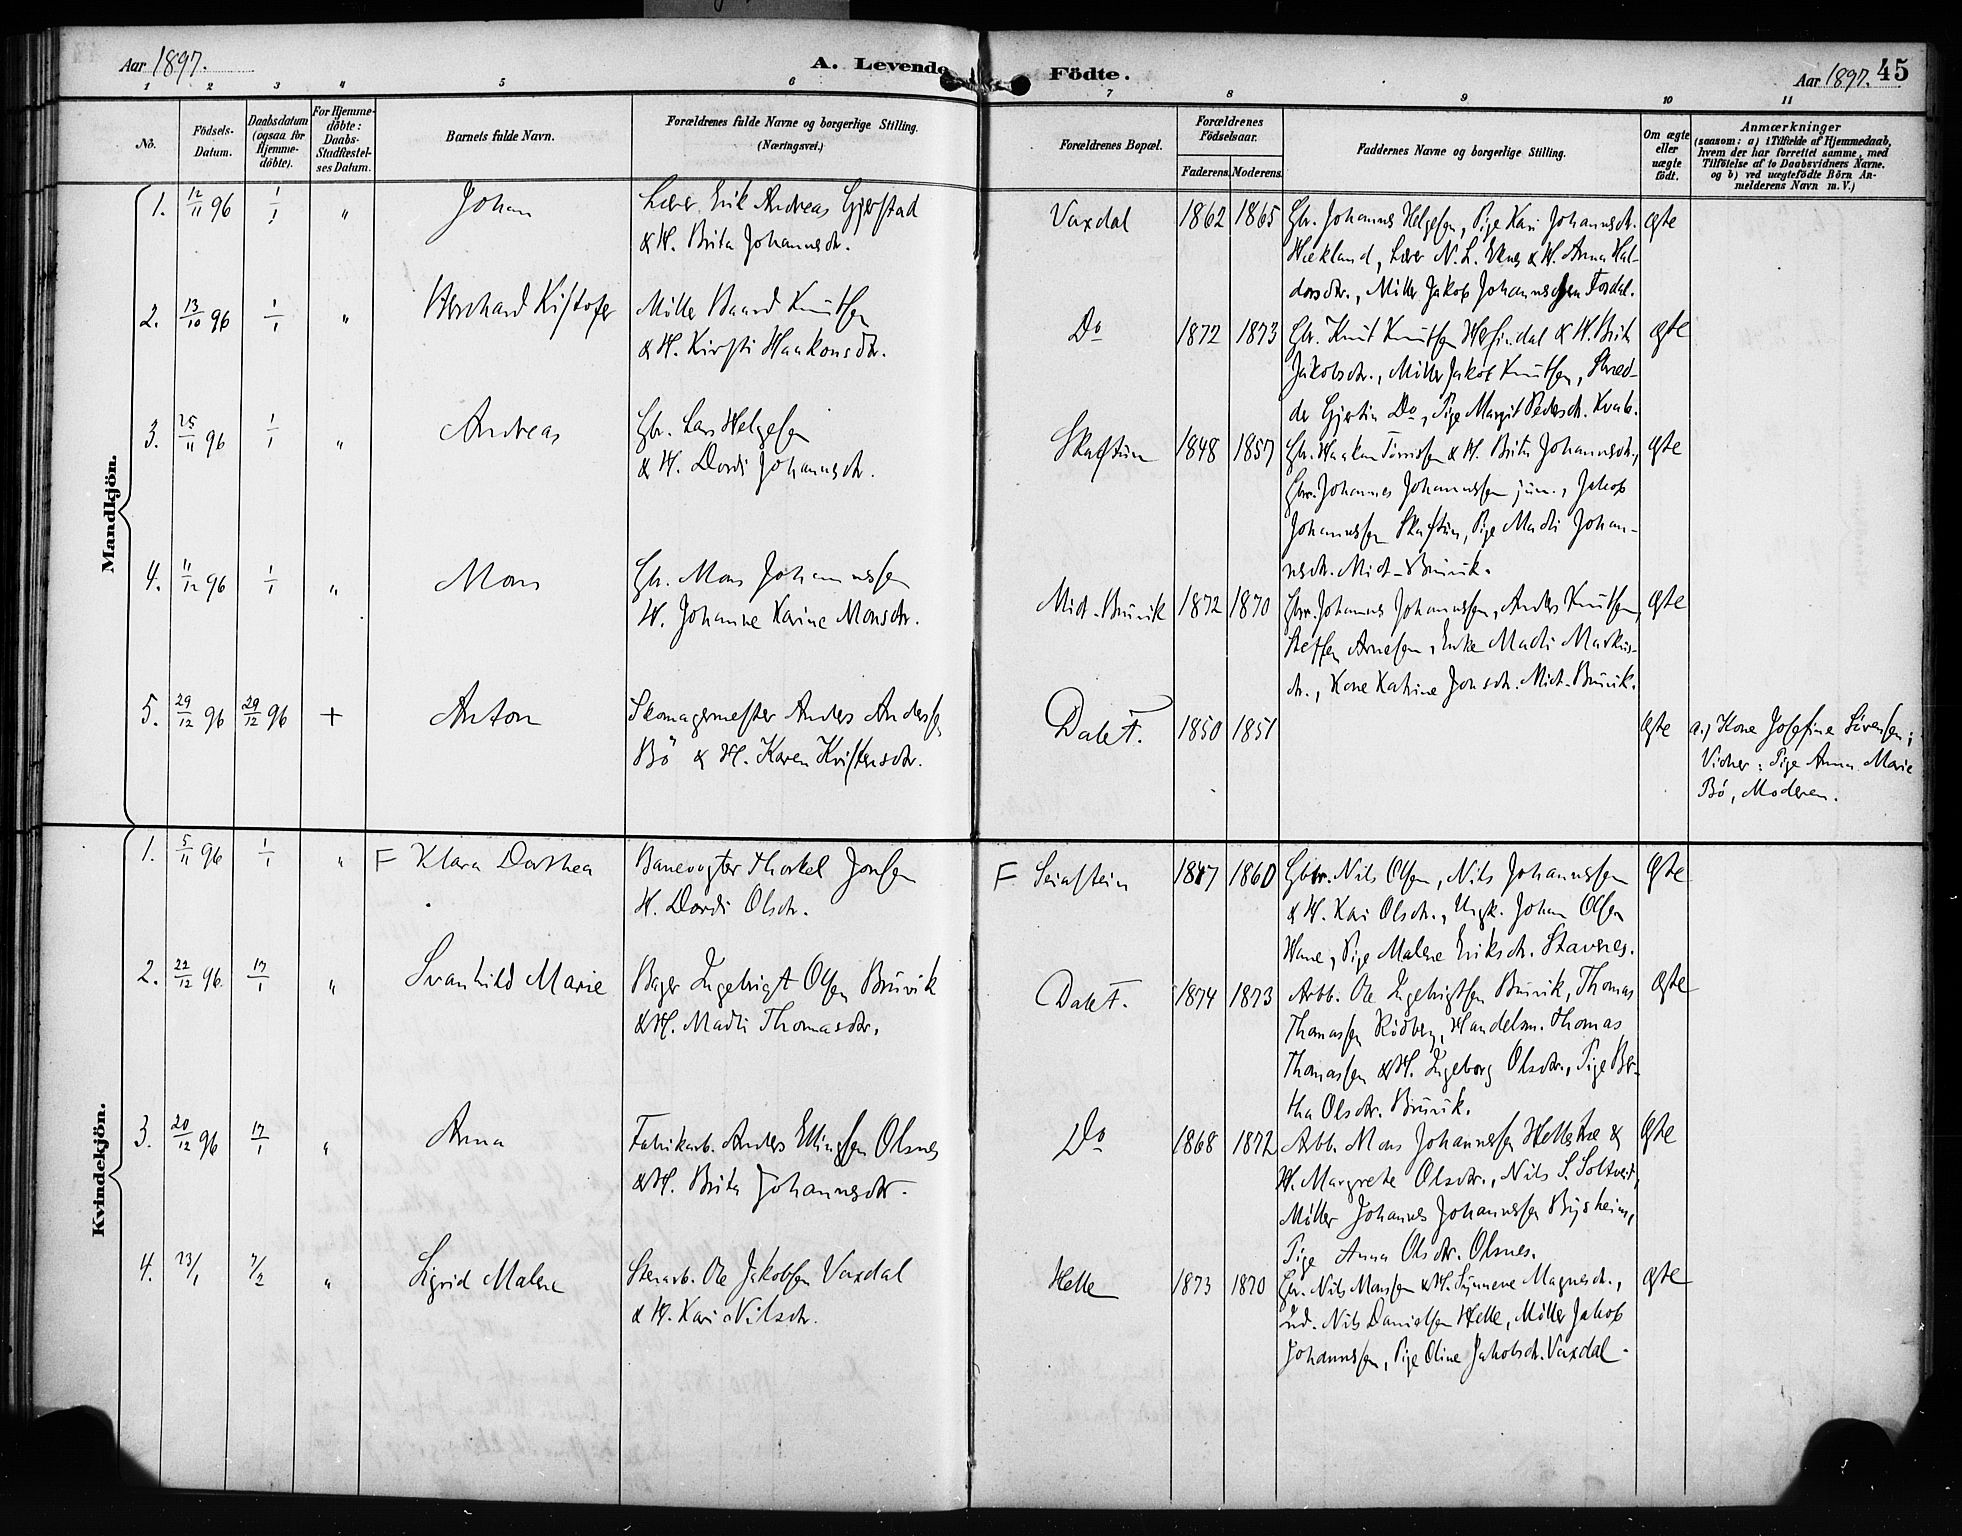 Aar 1897.
A. Levende Födte.
Aar 1897. 45
1 2 3 " 5 6 7 8 9 10 11
No.
Födsels-
Datum.
Daabsdatum
(ogsaa for
Hjemme-
döbte).
For Hjemme-
döbte:
Daabs-
Stadfæstel-
ses Datum.
Barnets fulde Navn.
Forældrenes fulde Navne og borgerlige Stilling.
(Næringsvei.)
Forældrenes Bopæl.
Forældrenes
Födselsaar.
Faderens. Moderens.
Faddernes Navne og borgerlige Stilling.
Om ægte
eller
uægte
født.
Anmærkninger
(saasom: a) i Tilfælde af Hjemmedaab,
hvem der har forrettet samme, med
Tilföielse af to Daabsvidners Navne.
og b) ved uægtefödte Börn An-
melderens Navn m. V.)
Mandkjön.
1. 12/11 96 1/1 " Johan
Lærer Erik Andreas Gjerstad
& H. Brita Johannesdr.
Vaxdal 1862 1865
Gbr. Johannes Helgesen, Pige Kari Johannesdr.
Hækland, Lærer N. L. & H. Anna Hal-
dorsdtr., Möller Jakob Johannessen Fosdal.
ægte
2. 13/10 96 1/1 " Bernhard Kristofer
Möller Baard Knutsen
& H. Kirsti Haakonsdtr.
Do 1872 1873
Gbr. Knut Knutsen Hesjindal & H. Brita
Jakobsdtr., Möller Jakob Knutsen, Skræd-
der Gjertin Do, Pige Margit Pedersdr. Kvab.
ægte
3. 25/11 96 1/1 " Andreas
Gbr. Lars Helgesen
& H. Dordi Johannesdr.
Skaftun 1848 1857
Gbr. Haakon & H. Brita Johannesdr.,
Gbrr. Johannes Johannessen jun., Jakob
Johannessen Skaftun, Pige Madli Johan-
nesdr. Midt-Bruvik.
ægte
4. 11/12 96 1/1 " Mons
Gbr. Mons Johannessen
H. Johanne Karine Monsdtr.
Midt-Bruvik 1872 1870
Gbrr. Johannes Johannessen, Anders Knutsen,
Steffen Arnesen, Enke Madli Markus-
dr., Kone Katrine Jonsdr. Midt-Bruvik.
ægte
5. 29/12 96 29/12 96 + Anton
Skomagermester Anders Andersen
Bö & H. Karen Kristensdtr.
Dale F. 1850 1851
ægte
a.) Kone Josefine Sörensen;
Vidner: Pige Anna Marie
Bö, Moderen.
Kvindekjön.
1. 5/11 96 1/1 " F Klara Dorthea
Banevogter Thorkel Jonsen
H. Dordi Olsdr.
F 1860
Gbrr. Nils Olsen, Nils Johannessen
& H. Kari Olsdr., Ungk. Johan Olsen
Hane, Pige Malene Eriksdr. Stavenes.
ægte
2. 22/12 96 17/1 " Svanhild Marie
Bager Ingebrigt Olsen Bruvik
& H. Madli Thomasdtr.
Dale F. 1874 1873
Arbb. Ole Ingebrigtsen Bruvik, Thomas
Thomassen Rödberg, Handelsm. Thomas
Thomassen & H. Ingeborg Olsdtr., Pige Ber-
tha Olsdtr. Bruvik.
ægte
3. 20/12 96 17/1 " Anna
Fabrikarb. Anders Ellingsen Olsnes
& H. Brita Johannesdtr.
Do 1868 1872
Arbb. Mons Johannessen Hellestræ &
H. Margrete Olsdtr., Nils S. Soltveit,
Möller Johannes Johannessen Bysheim,
Pige Anna Olsdtr. Olsnes.
ægte
4. 23/1 7/2 " Sigrid Malene
Stenarb. Ole Jakobsen Vaxdal
& H. Kari Nilsdtr.
Helle 1873 1870
Gbr. Nils Monsen & H. Synneve Magnesdr.,
Nils Danielsen Helle, Möller Jakob
Johannessen, Pige Oline Jakobsdr. Vaxdal.
ægte